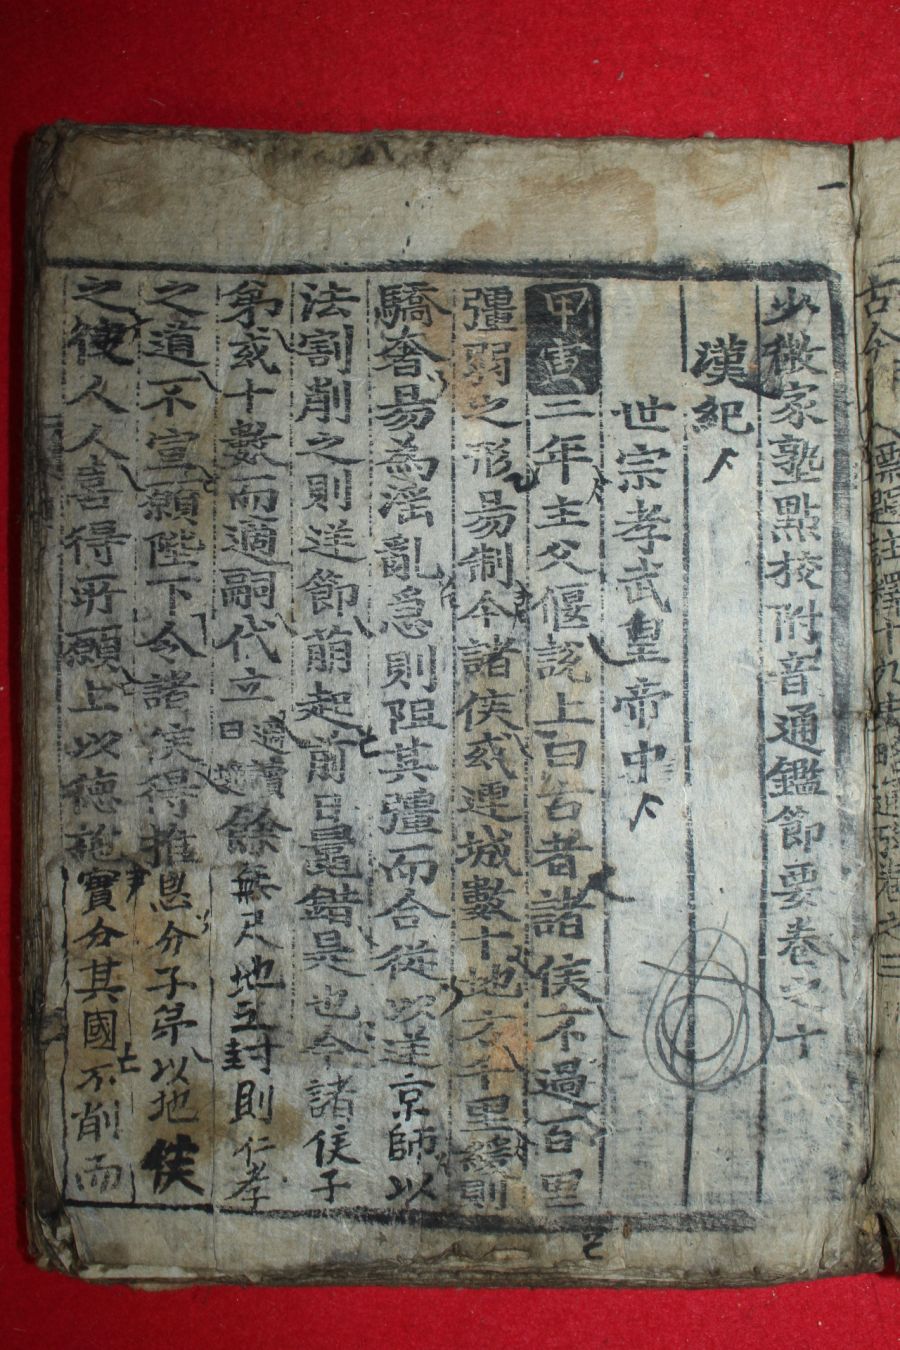 少微家塾點校附音通鑑節要卷之十
漢紀
世宗孝武皇帝中
甲寅二年主父偃說上曰古者諸侯不過百里
彊弱之形易制今諸侯或連城數十地方千里緩則
驕奢易為淫亂急則阻其彊而合從以逆京師以
法割削之則逆節萌起前日鼂錯是也今諸侯子
弟或十數而適嗣代立適讀曰嫡餘無尺地之封則仁孝
之道不宣願陛下令諸侯得推恩分子弟以地侯
之彼人人喜得所願上以德施實分其國不削而